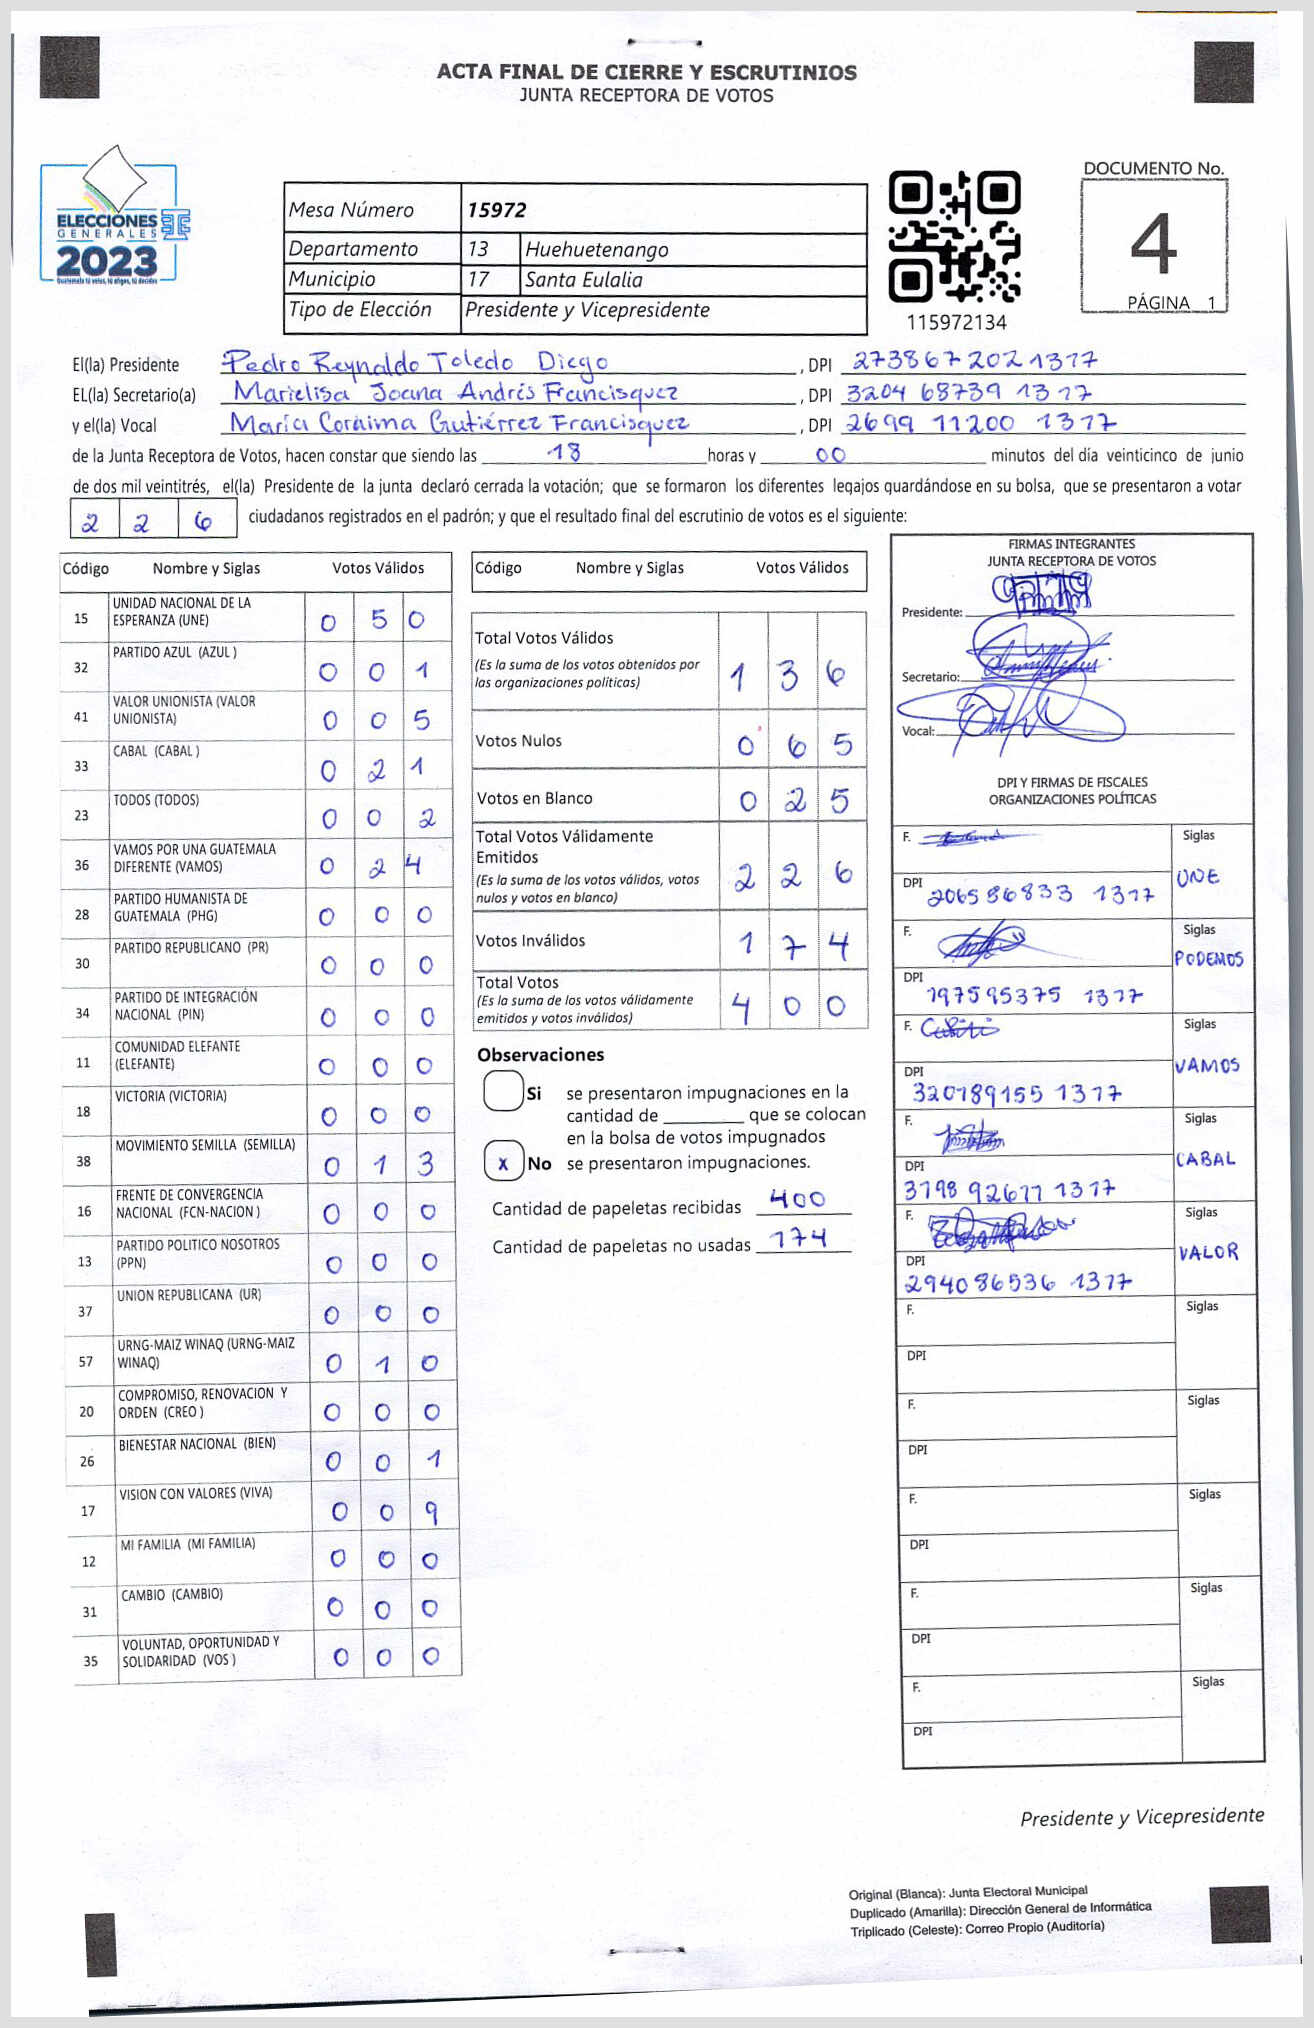 ACTA FINAL DE CIERRE Y ESCRUTINIOS
JUNTA RECEPTORA DE VOTOS
ELECCIONES
GENERALES
2023
Guatemala tú votas, tú eliges, tú decides
Mesa Número 15972
Departamento 13 Huehuetenango
Municipio 17 Santa Eulalia
Tipo de Elección Presidente y Vicepresidente
115972134
DOCUMENTO No.
4
PÁGINA 1
El(la) Presidente Pedro Reynaldo Toledo Diego , DPI 273867202 1317
EL(la) Secretario(a) Marielisa Joana Andrés Francisquez , DPI 3204 68739 1317
y el(la) Vocal María Coraima Gutiérrez Francisquez , DPI 2699 11200 1317
de la Junta Receptora de Votos, hacen constar que siendo las 18 horas y 00 minutos del día veinticinco de junio
de dos mil veintitrés, el(la) Presidente de la junta declaró cerrada la votación; que se formaron los diferentes legajos guardándose en su bolsa, que se presentaron a votar
2 2 6 ciudadanos registrados en el padrón; y que el resultado final del escrutinio de votos es el siguiente:
Código Nombre y Siglas Votos Válidos
15 UNIDAD NACIONAL DE LA ESPERANZA (UNE) 0 5 0
32 PARTIDO AZUL (AZUL ) 0 0 1
41 VALOR UNIONISTA (VALOR UNIONISTA) 0 0 5
33 CABAL (CABAL ) 0 2 1
23 TODOS (TODOS) 0 0 2
36 VAMOS POR UNA GUATEMALA DIFERENTE (VAMOS) 0 2 4
28 PARTIDO HUMANISTA DE GUATEMALA (PHG) 0 0 0
30 PARTIDO REPUBLICANO (PR) 0 0 0
34 PARTIDO DE INTEGRACIÓN NACIONAL (PIN) 0 0 0
11 COMUNIDAD ELEFANTE (ELEFANTE) 0 0 0
18 VICTORIA (VICTORIA) 0 0 0
38 MOVIMIENTO SEMILLA (SEMILLA) 0 1 3
16 FRENTE DE CONVERGENCIA NACIONAL (FCN-NACION ) 0 0 0
13 PARTIDO POLITICO NOSOTROS (PPN) 0 0 0
37 UNION REPUBLICANA (UR) 0 0 0
57 URNG-MAIZ WINAQ (URNG-MAIZ WINAQ) 0 1 0
20 COMPROMISO, RENOVACION Y ORDEN (CREO ) 0 0 0
26 BIENESTAR NACIONAL (BIEN) 0 0 1
17 VISION CON VALORES (VIVA) 0 0 9
12 MI FAMILIA (MI FAMILIA) 0 0 0
31 CAMBIO (CAMBIO) 0 0 0
35 VOLUNTAD, OPORTUNIDAD Y SOLIDARIDAD (VOS ) 0 0 0
Código Nombre y Siglas Votos Válidos
Total Votos Válidos
(Es la suma de los votos obtenidos por
las organizaciones politicas) 1 3 6
Votos Nulos 0 6 5
Votos en Blanco 0 2 5
Total Votos Válidamente
Emitidos
(Es la suma de los votos válidos, votos
nulos y votos en blanco) 2 2 6
Votos Inválidos 1 7 4
Total Votos
(Es la suma de los votos válidamente
emitidos y votos inválidos) 4 0 0
Observaciones
Si se presentaron impugnaciones en la
cantidad de que se colocan
en la bolsa de votos impugnados
X No se presentaron impugnaciones.
Cantidad de papeletas recibidas 400
Cantidad de papeletas no usadas 174
FIRMAS INTEGRANTES
JUNTA RECEPTORA DE VOTOS
Presidente:
Secretario:
Vocal:
DPI Y FIRMAS DE FISCALES
ORGANIZACIONES POLÍTICAS
F. Siglas
DPI 206586833 1317 UNE
F. Siglas
DPI 197595375 1317 PODEMOS
F. Siglas
DPI 320189155 1317 VAMOS
F. Siglas
DPI 3198 92677 1317 CABAL
F. Siglas
DPI 294086536 1317 VALOR
F. Siglas
DPI
F. Siglas
DPI
F. Siglas
DPI
F. Siglas
DPI
F. Siglas
DPI
Presidente y Vicepresidente
Original (Blanca): Junta Electoral Municipal
Duplicado (Amarilla): Dirección General de Informática
Triplicado (Celeste): Correo Propio (Auditoría)